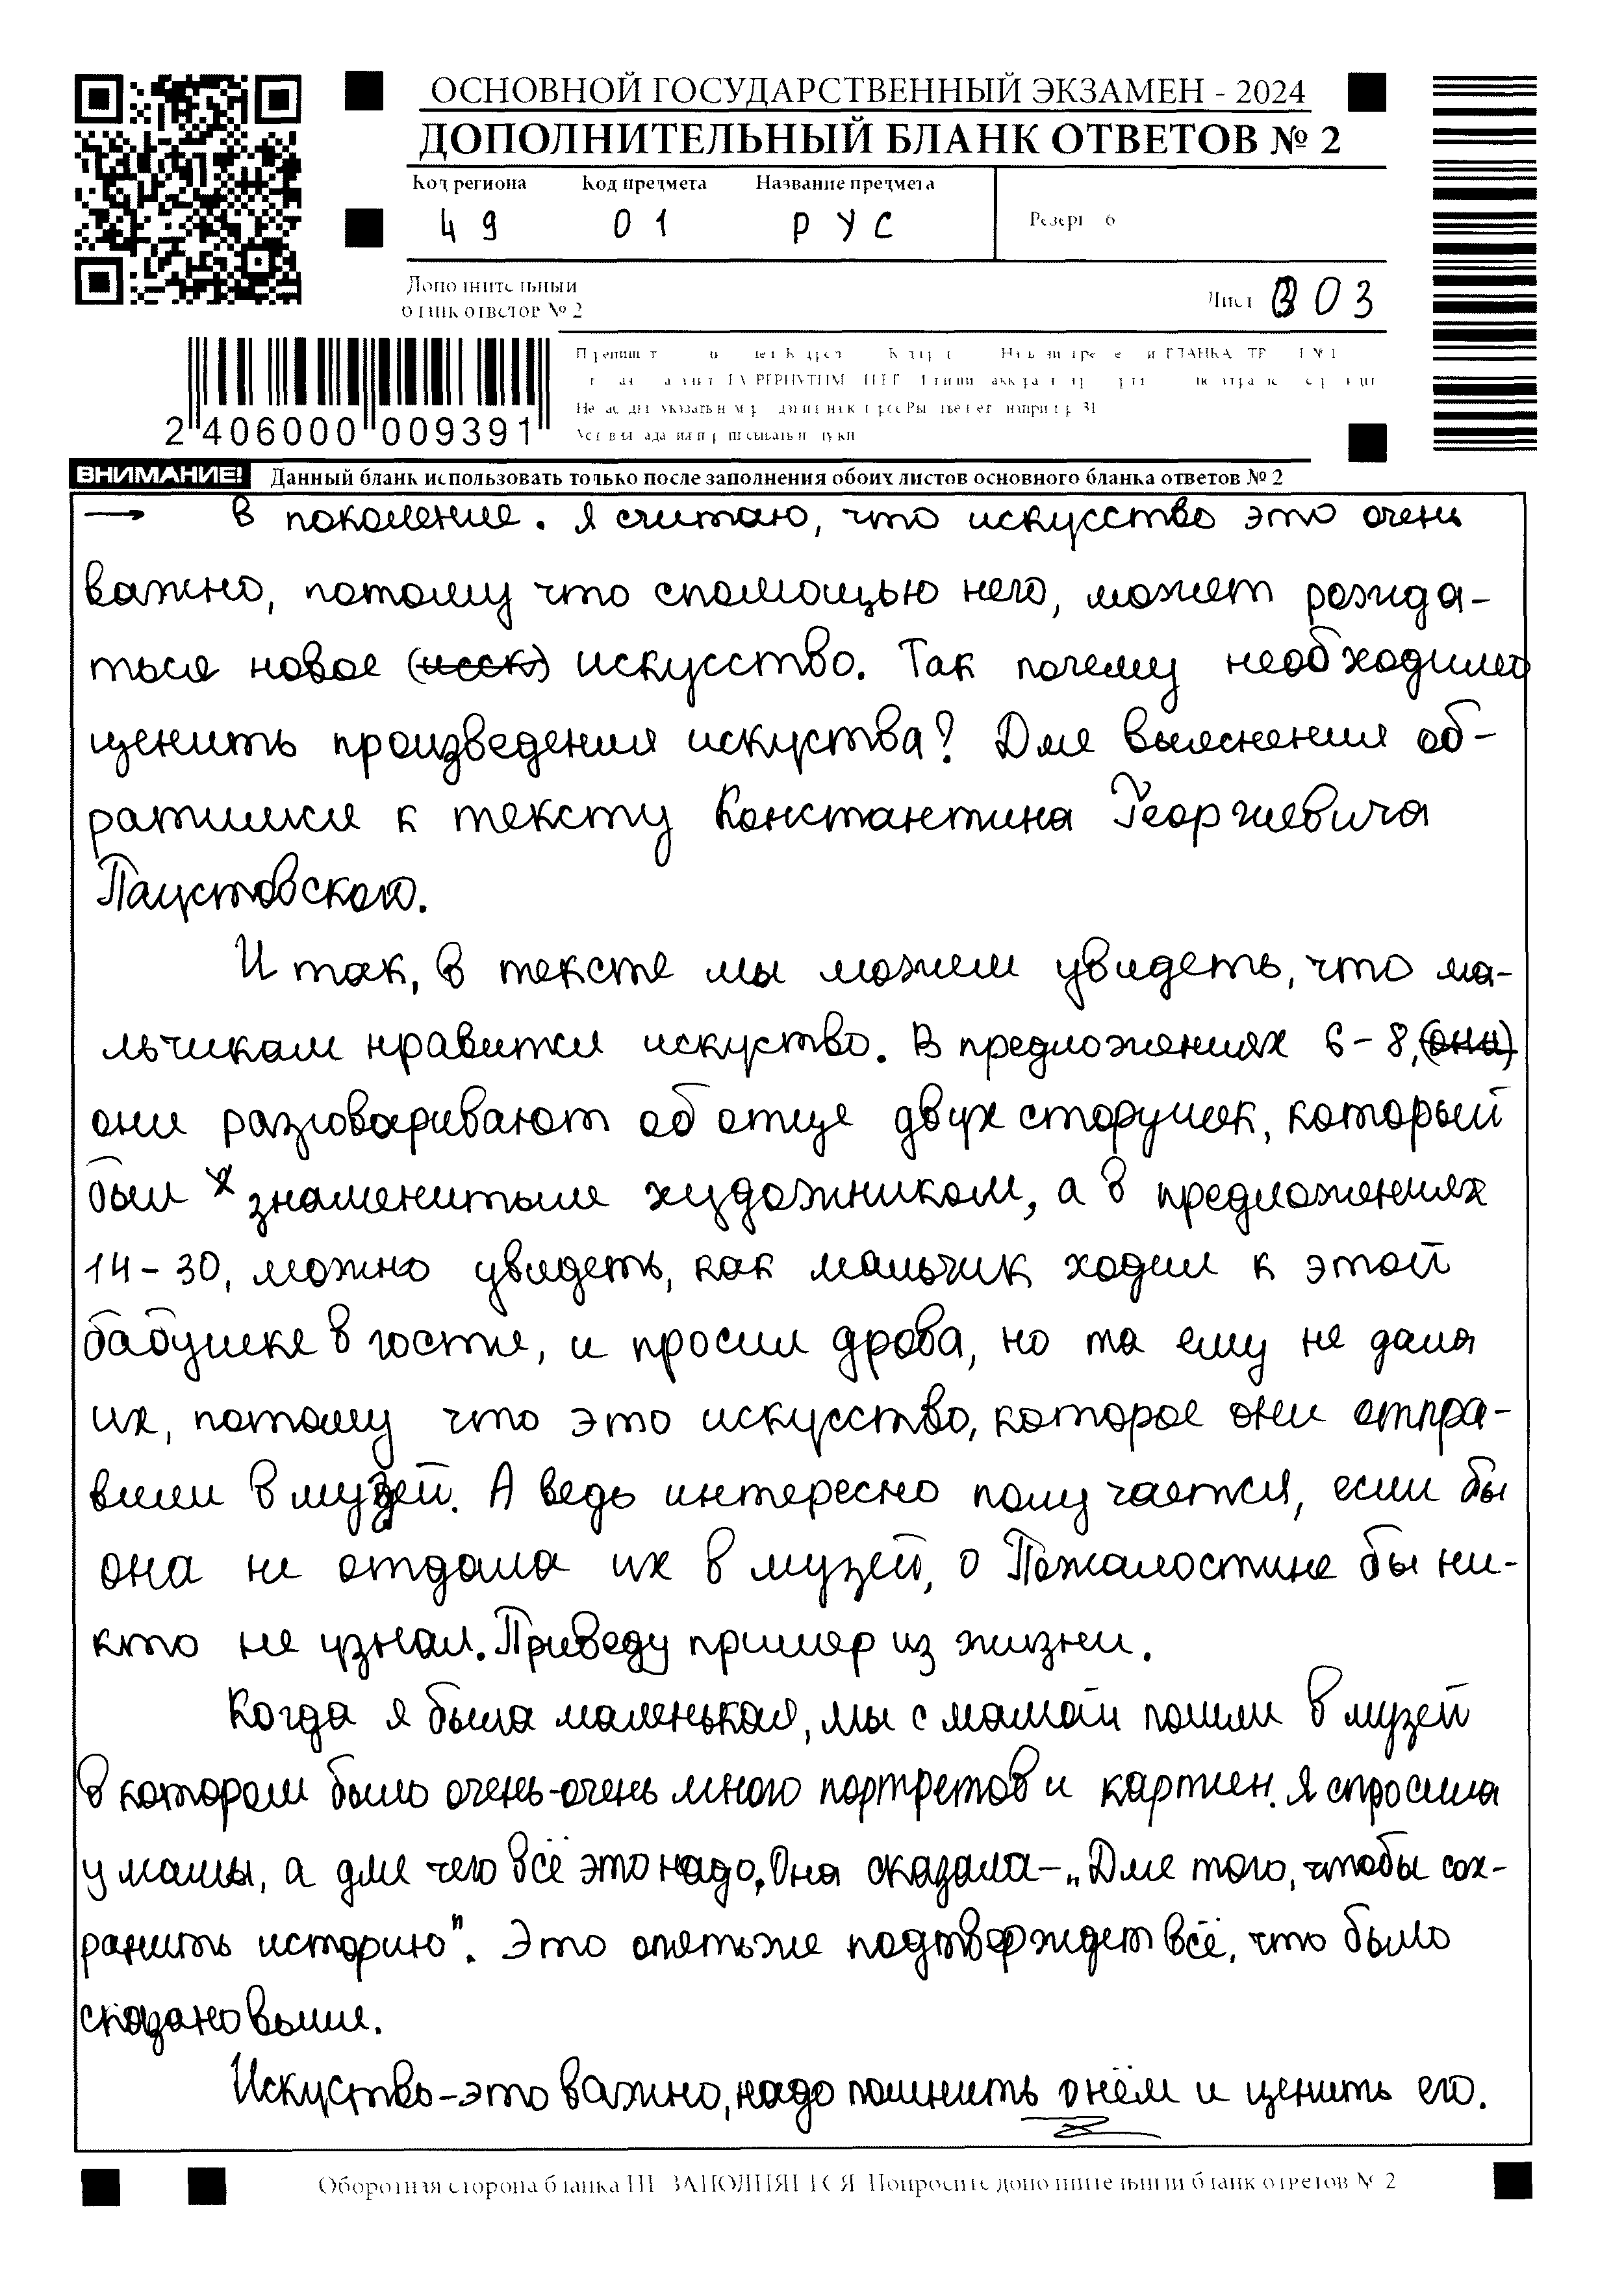 ОСНОВНОЙ ГОСУДАРСТВЕННЫЙ ЭКЗАМЕН - 2024
ДОПОЛНИТЕЛЬНЫЙ БЛАНК ОТВЕТОВ № 2
Код региона Код предмета Название предмета
49 01 РУС
Резерв 6
Дополнительный
бланк ответов № 2
Лист 003
2 406000 009391
ВНИМАНИЕ! Данный бланк использовать только после заполнения обоих листов основного бланка ответов № 2
→ в поколение. Я считаю, что искусство это очень
важно, потому что спомощью него, может рожида-
ться новое (исск) искусство. Так почему необходимо
ценить произведения искуства? Для выяснения об-
ратимся к тексту Константина Георгиевича
Паустовского.
И так, в тексте мы можем увидеть, что ма-
льчикам нравится искуство. В предложениях 6-8, (они)
они разговаривают об отце двух старушек, который
был знаменитым художником, а в предложениях
14-30, можно увидеть, как мальчик ходил к этой
бабушке в гости, и просил дрова, но та ему не дала
их, потому что это искусство, которое они отпра-
вили в музей. А ведь интересно получается, если бы
она не отдала их в музей, о Пожалостине бы ни-
кто не узнал. Приведу пример из жизни.
Когда я была маленькая, мы с мамой пошли в музей
в котором было очень-очень много портретов и картин. Я спросила
у мамы, а для чего всё это надо. Она сказала - „Для того, чтобы сох-
ранить историю". Это опятьже подтверждет всё, что было
сказано выше.
Искуство-это важно, надо помнить о нём и ценить его.
Оборотная сторона бланка НЕ ЗАПОЛНЯЕТСЯ. Попросите дополнительный бланк ответов № 2